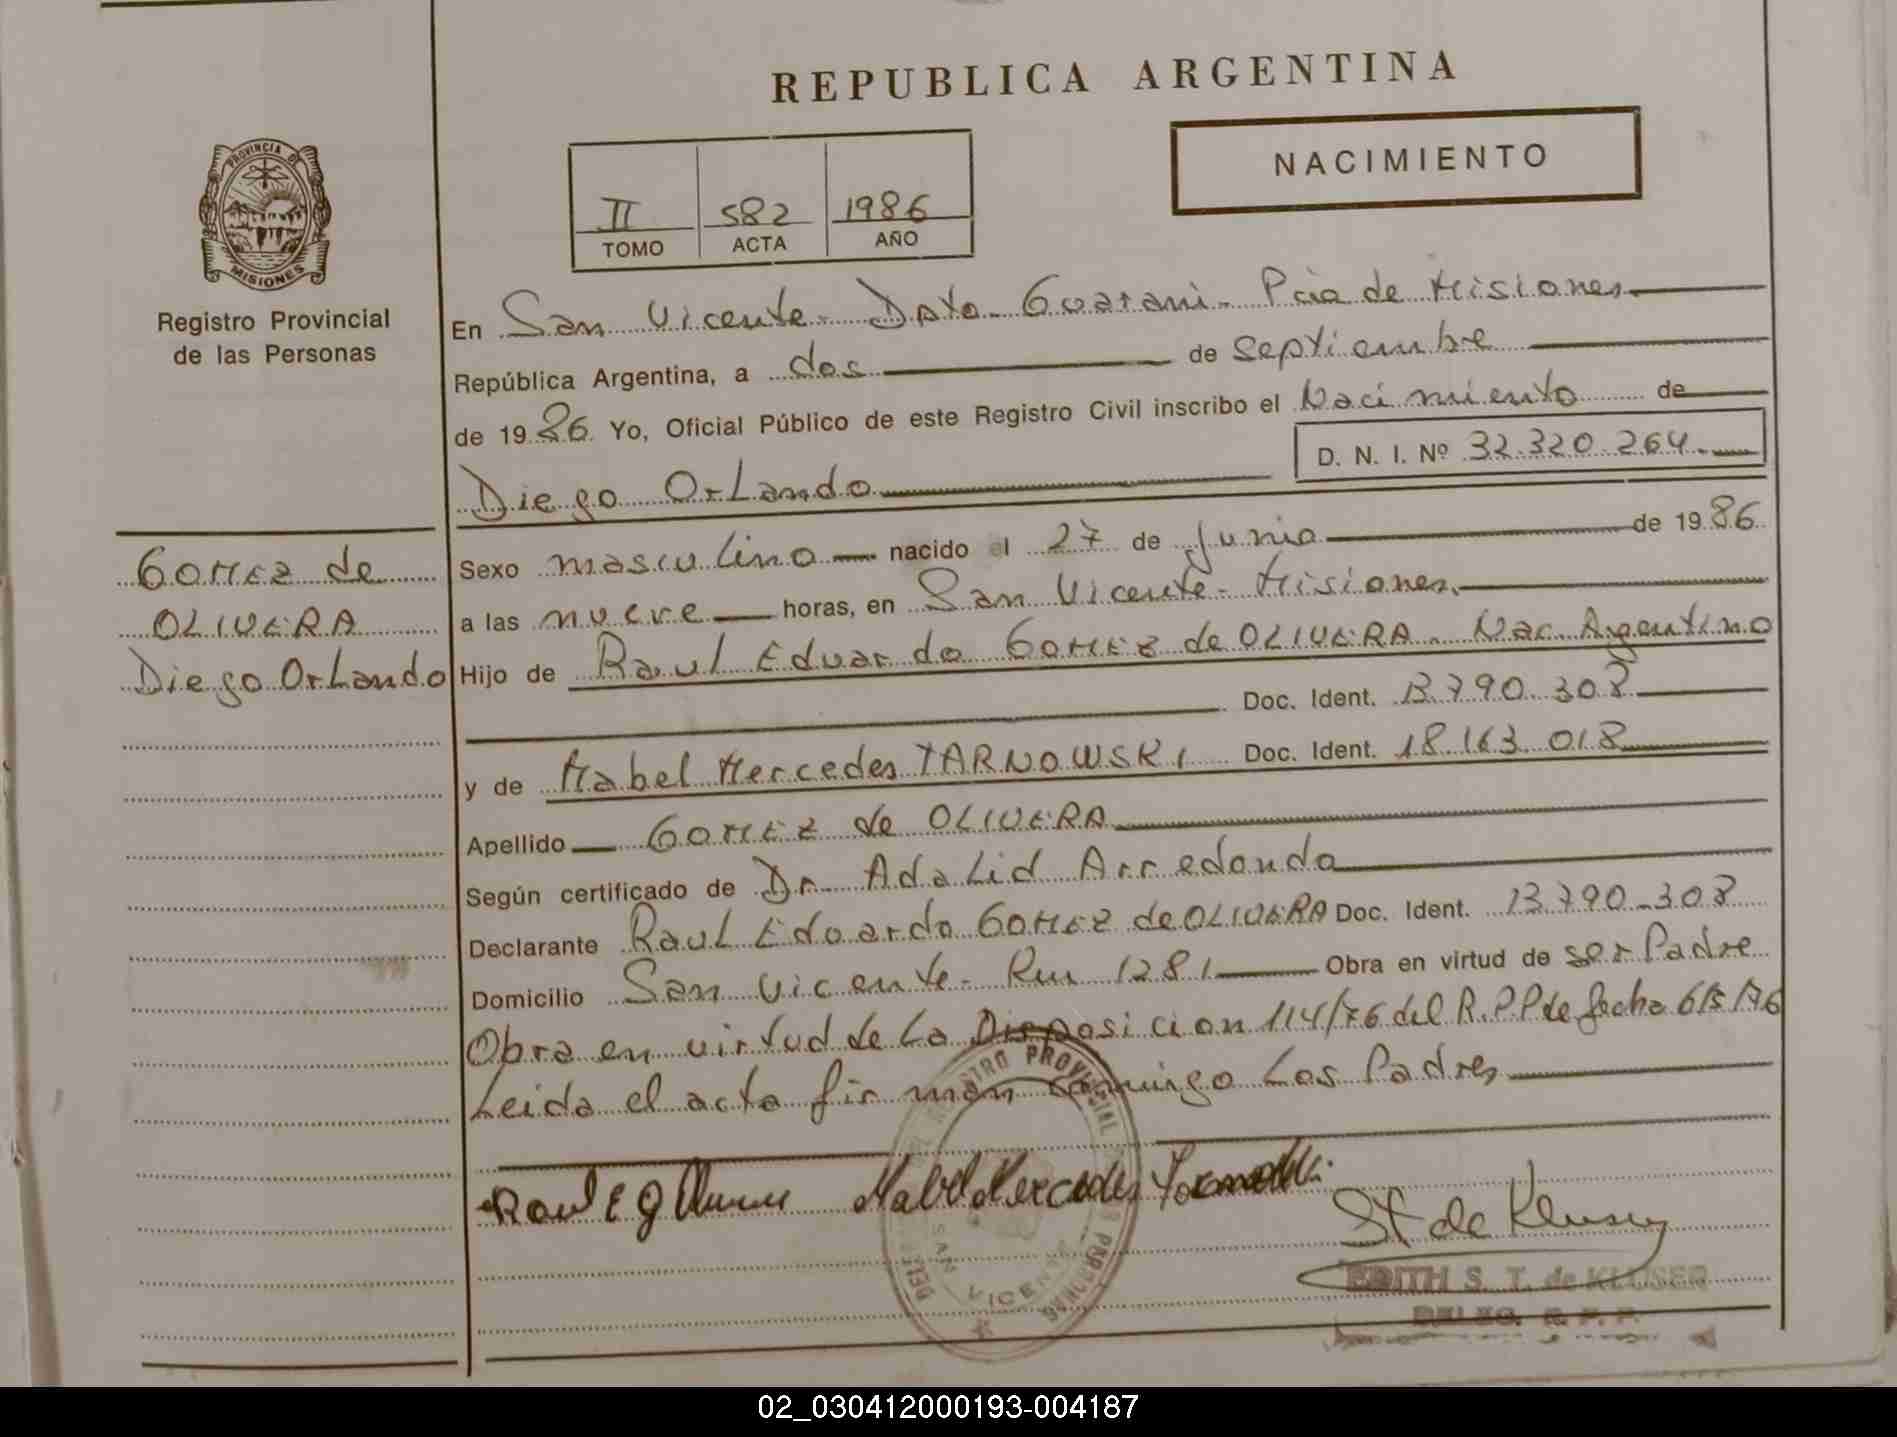 REPUBLICA ARGENTINA
NACIMIENTO
II 582 1986
TOMO ACTA AÑO
PROVINCIA DE
MISIONES
Registro Provincial
de las Personas
En San Vicente - Dpto. Guarani - Pcia de Misiones
República Argentina, a dos de septiembre
de 1986 Yo, Oficial Público de este Registro Civil inscribo el Nacimiento de
D. N. I. Nº 32.320.264.
Diego Orlando
GOMEZ de
OLIVERA
Diego Orlando
Sexo masculino nacido el 27 de Junio de 1986
a las nueve horas, en San Vicente - Misiones.
Hijo de Raul Eduardo GOMEZ de OLIVERA. Nac. Argentino
Doc. Ident. 13.790.308
y de Mabel Mercedes TARNOWSKI Doc. Ident. 18.163.018
Apellido GOMEZ de OLIVERA
Según certificado de Dr. Adalid Arredondo
Declarante Raul Eduardo GOMEZ de OLIVERA Doc. Ident. 13.790.308
Domicilio San Vicente - Km 1281 Obra en virtud de ser Padre
Obra en virtud de la Disposicion 114/76 del R.P.P de fecha 6/5/76
Leida el acta firman conmigo Los Padres
Raul E G Mabel Mercedes
St de Kluser
REGISTRO PROVINCIAL
SAN VICENTE
EDITH S. T. de KLUSER
DELEG. R. P. P.
02_030412000193-004187